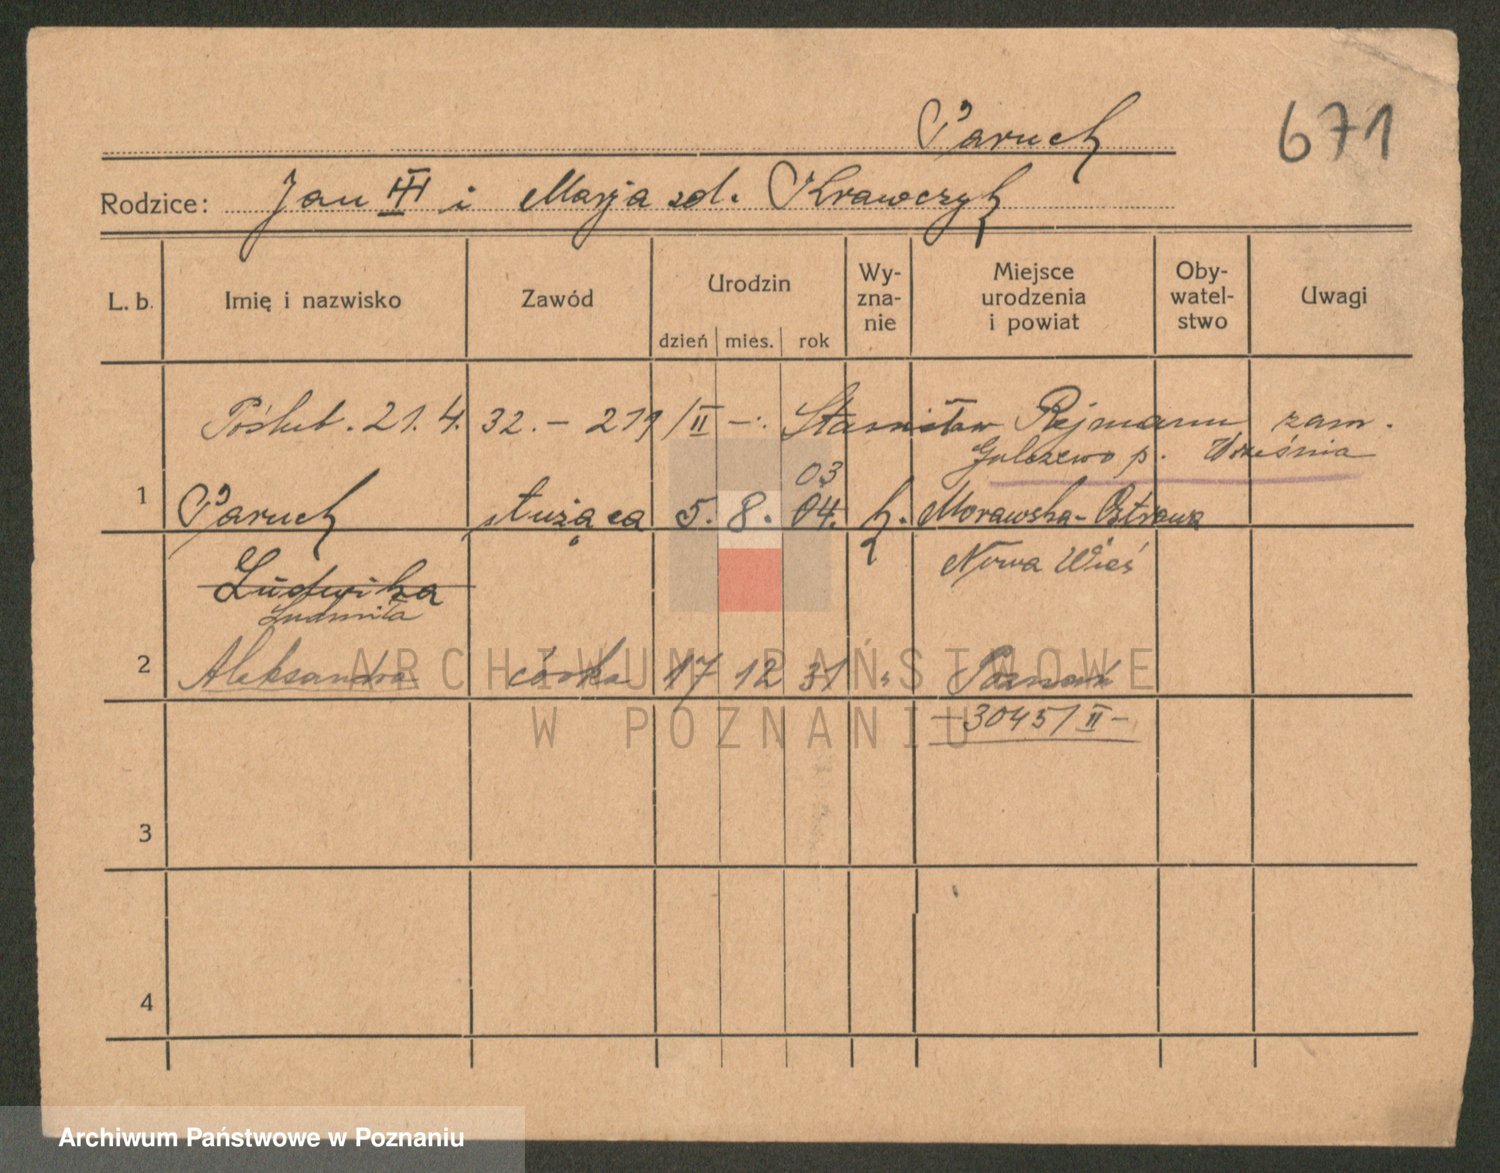 Paruch
671
Rodzice: Jan III i Marja zd. Krawczyk
L. b. Imię i nazwisko Zawód Urodzin dzień mies. rok Wy-zna-nie Miejsce urodzenia i powiat Oby-watel-stwo Uwagi
Póślub. 21. 4. 32. - 219/II -. Stanisław Rejmann zam.
Gulczewo p. Września
03
1 Paruch służąca 5. 8. 04. k. Morawska-Ostrawa
Nowa Wieś
Ludwika
Ludmiła
2 Aleksandra córka 17 12 31 " Poznań
-3045/II-
3
4
ARCHIWUM PAŃSTWOWE
W POZNANIU
Archiwum Państwowe w Poznaniu